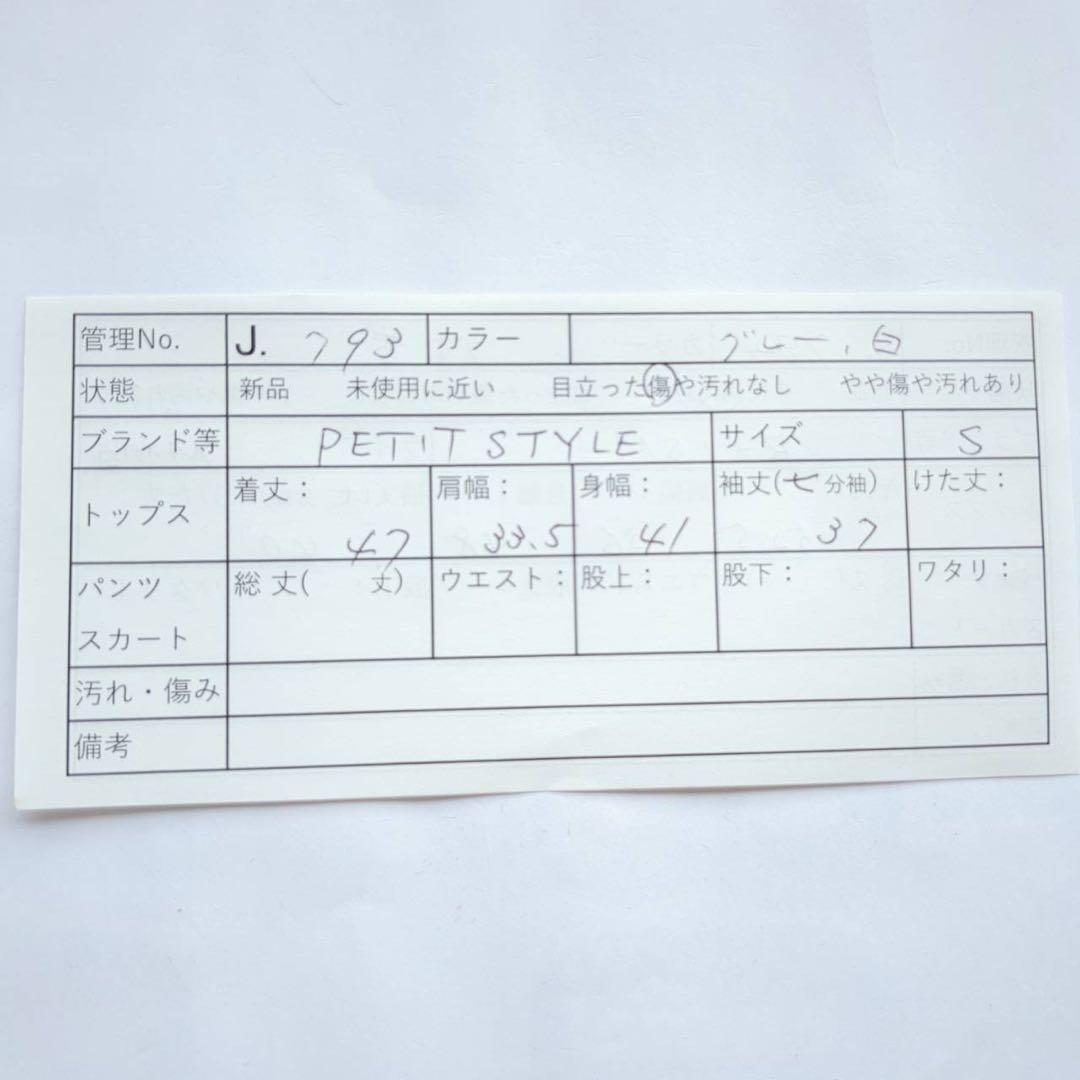 管理No. J. 793 カラー グレー、白
状態 新品 未使用に近い 目立った傷や汚れなし やや傷や汚れあり
ブランド等 PETIT STYLE サイズ S
トップス 着丈: 47 肩幅: 33.5 身幅: 41 袖丈(七分袖) 37 けた丈:
パンツ 総丈( 丈) ウエスト: 股上: 股下: ワタリ:
スカート
汚れ・傷み
備考